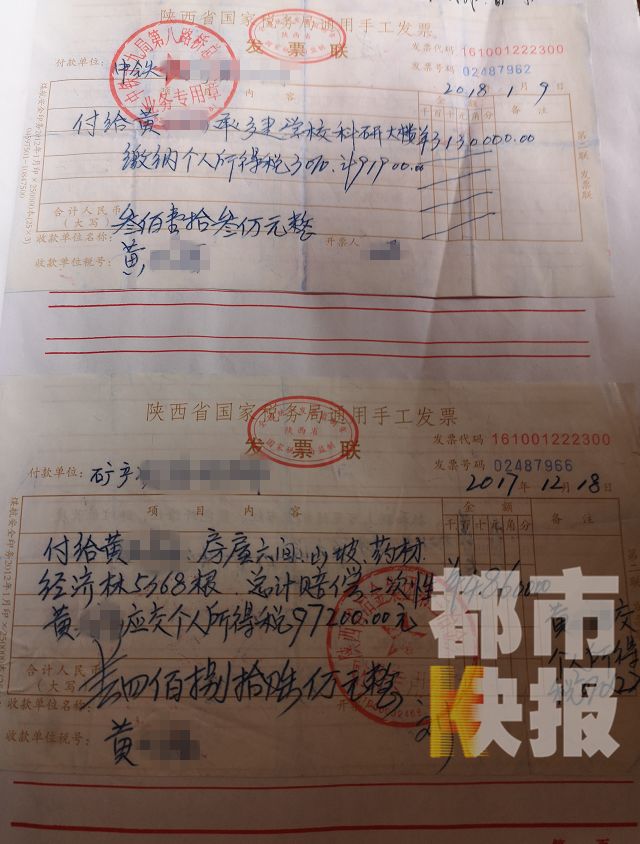 陕西省国家税务局通用手工发票
发票联
发票代码 161001222300
发票号码 02487962
付款单位: 中铁
2018年1月9日
项目内容 金额 备注
千百十元角分
付给黄 承 学校科研大楼 3130000.00
缴纳个人所得税3% 计91900.00
合计人民币
(大写) 叁佰壹拾叁仟元整
收款单位名称: 开票人
收款单位税号: 黄
第二联 发票联
业务专用章
陕西省国家税务局通用手工发票
发票联
发票代码 161001222300
发票号码 02487966
付款单位: 矿产
2017年12月18日
项目内容 金额 备注
千百十元角分
付给黄 房屋六间、山坡、药材
经济林5368根 总计赔偿一次性
黄 应交个人所得税97200.00元
合计人民币
(大写) 四佰捌拾陆万元整
收款单位名称:
收款单位税号: 黄
都市
快报